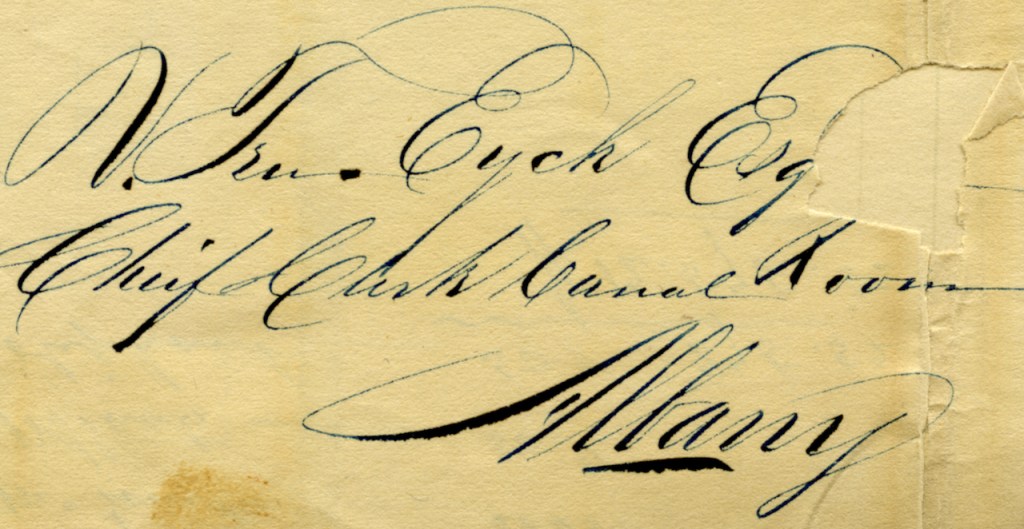 V. Ten Eyck Esq
Chief Clerk Canal Room
Albany